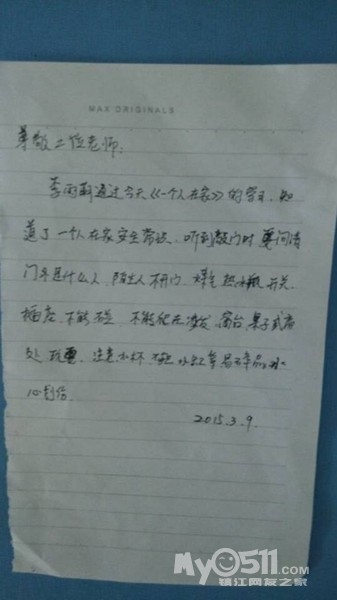 MAX ORIGINALS
尊敬二位老师:
李雨蔚通过今天《一个人在家》的学习,知
道了一个人在家安全常识、听到敲门时要问清
门外是什么人,陌生人不开门、煤气 热水瓶 开关、
插座、不能碰 不能爬在沙发、窗台 桌子或高
处 玩耍、注意水杯 不 易碎品 小
心割伤
2015.3.9.
My0511.com
镇江网友之家